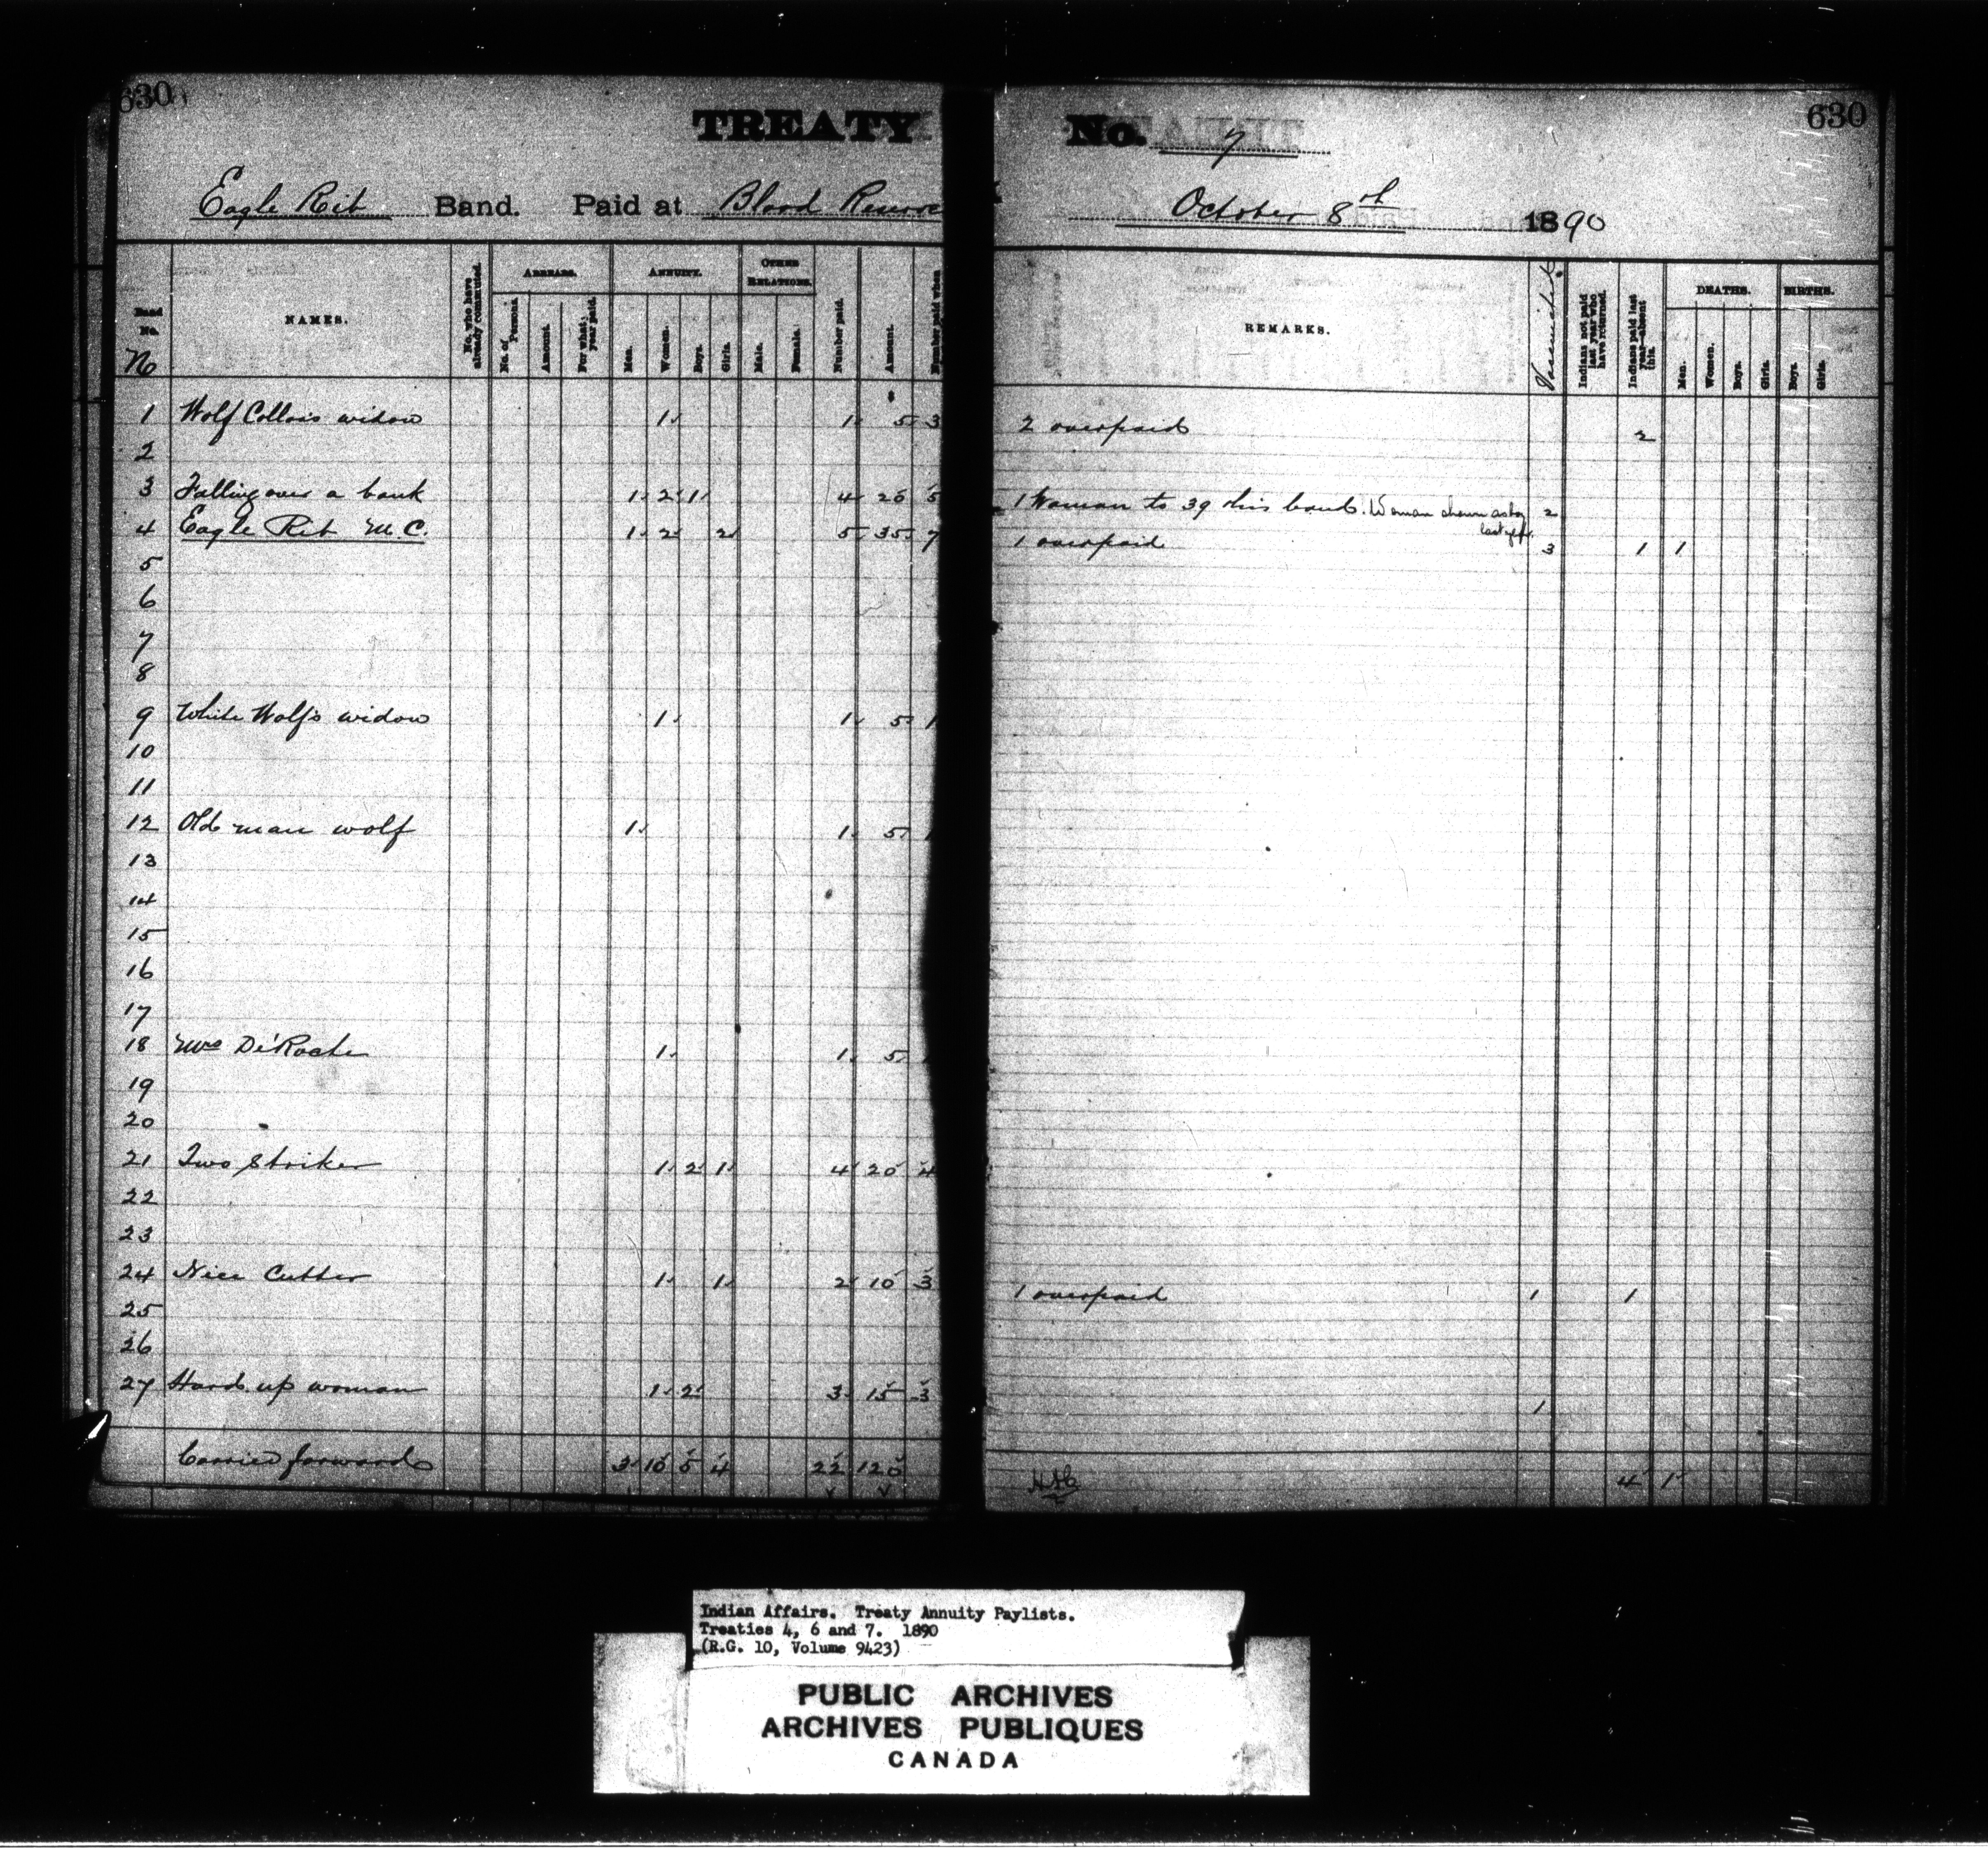 630
TREATY No. 7
630
Eagle Rib Band. Paid at Blood Reserve October 8th 1890
Band No. NAMES. No. who have already commuted. ARREARS. ANNUITY. OTHER RELATIONS. Number paid. Amount. Number paid when REMARKS. Vaccinated. Indians not paid last year who have returned. Indians paid last year—absent this. DEATHS. BIRTHS.
No
No. of Persons. Amount. For what year paid. Men. Women. Boys. Girls. Male. Female. Men. Women. Boys. Girls. Boys. Girls.
$
1 Wolf Collar's widow 1 1 5 3 2 overpaid 2
2
3 Falling over a bank 1 2 1 4 20 5 1 Woman to 39 this band. Woman shown as boy last yr. 2
4 Eagle Rib M.C. 1 2 2 5 35 7 1 overpaid 3 1 1
5
6
7
8
9 White Wolf's widow 1 1 5 1
10
11
12 Old man wolf 1 1 5 1
13
14
15
16
17
18 Mrs De'Roche 1 1 5
19
20
21 Two Striker 1 2 1 4 20 4
22
23
24 Nice Cutter 1 1 2 10 3 1 overpaid 1 1
25
26
27 Hard up woman 1 2 3 15 3 1
Carried forward 3 10 5 4 22 120 4 1
Indian Affairs. Treaty Annuity Paylists.
Treaties 4, 6 and 7. 1890
(R.G. 10, Volume 9423)
PUBLIC ARCHIVES
ARCHIVES PUBLIQUES
CANADA